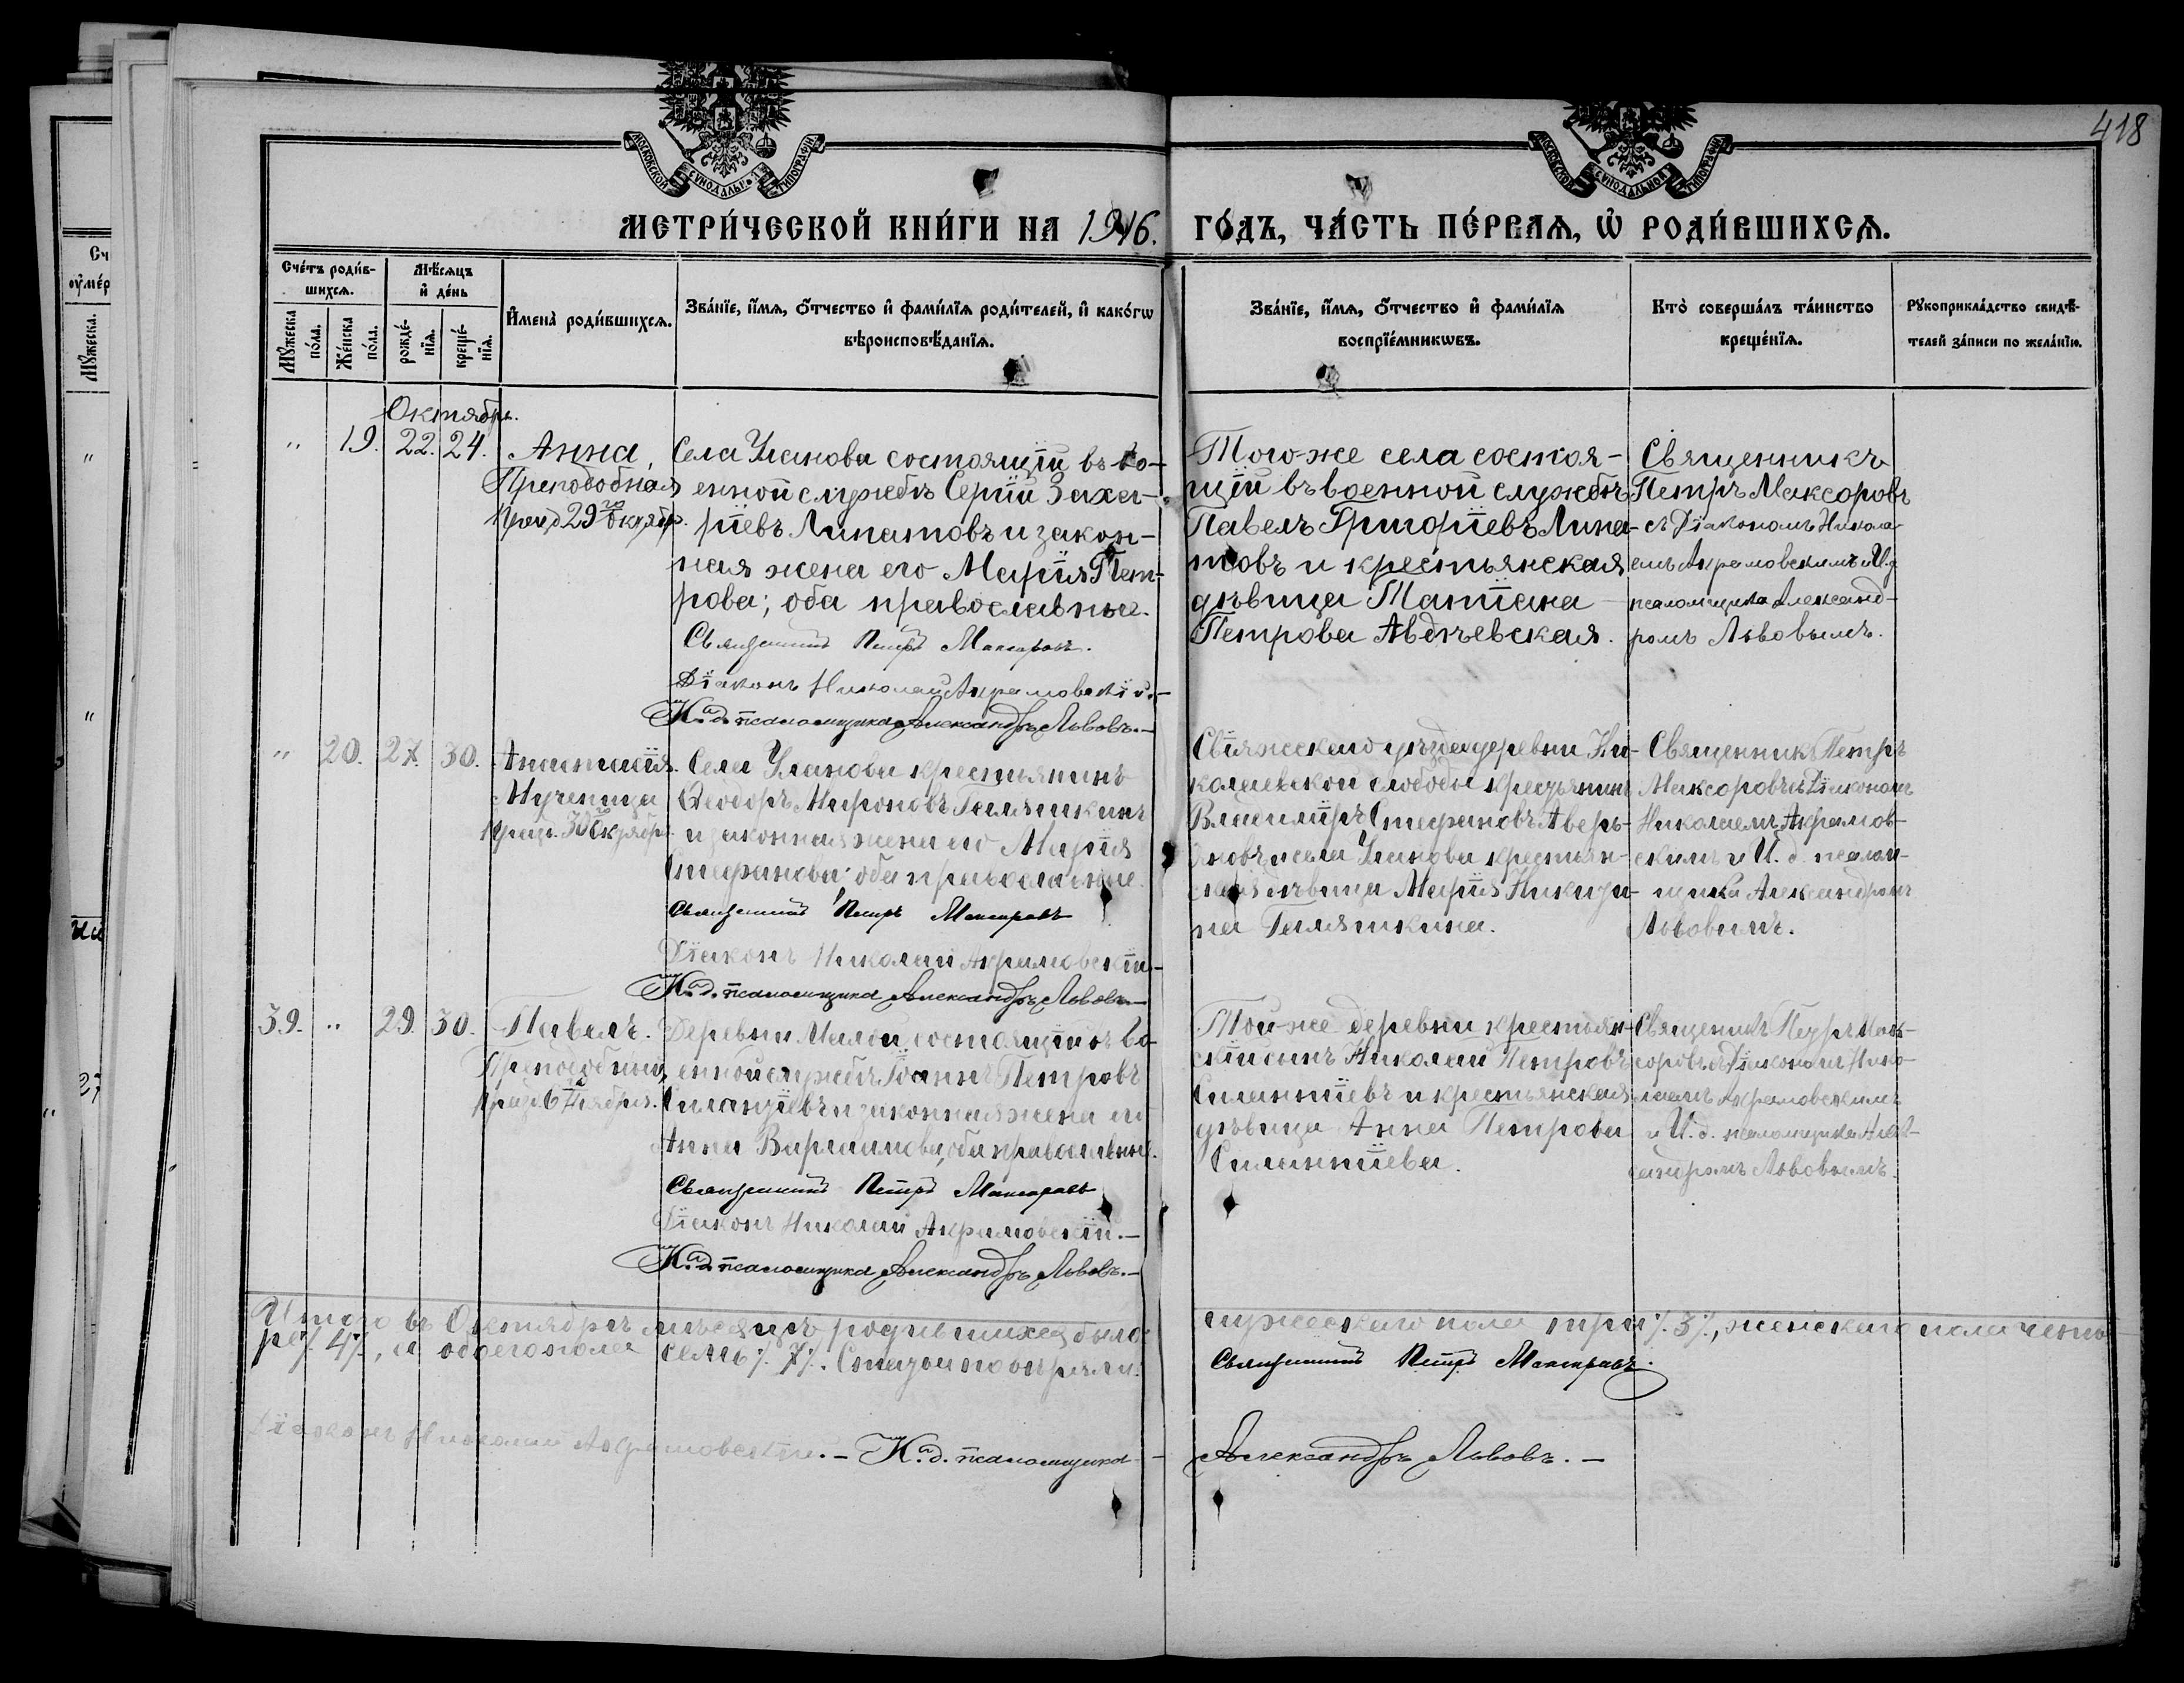 418
МОСКОВСКОЙ СѴНОДАЛЬНОЙ ТИПОГРАФІИ
МОСКОВСКОЙ СѴНОДАЛЬНОЙ ТИПОГРАФІИ
МЕТРИ́ЧЕСКОЙ КНИ́ГИ НА 1916.
ГО́ДЪ, ЧА́СТЬ ПЕ́РВАѦ, Ѡ҆ РОДИ́ВШИХСѦ.
Сче́тъ роди́в-
шихсѧ.
Мꙋ́жеска по́ла.
Же́нска по́ла.
Мѣ́сѧцъ
и҆ де́нь
рожде́-
нїѧ.
креще́-
нїѧ.
И҆мена̀ роди́вшихсѧ.
Зва́нїе, и҆́мѧ, ѻ҆́тчество и҆ фами́лїѧ роди́телей, и҆ како́гѡ
вѣроисповѣ́данїѧ.
Зва́нїе, и҆́мѧ, ѻ҆́тчество и҆ фами́лїѧ
воспрїе́мникѡвъ.
Кто̀ соверша́лъ та́инство
креще́нїѧ.
Рꙋкоприкла́дство свидѣ́-
телей за́писи по жела́нїю.
Октябрь.
" 19. 22. 24.
Анна,
Преподобная
празд 29го Октябр.
Села Уланова состоящій въ во-
енной службѣ Сергій Заха-
ріевъ Липатовъ и закон-
ная жена его Марія Пет-
рова; оба православные.
Священникъ Петръ Максоровъ.
Діаконъ Николай Акрамовскій.–
И. д. псаломщика Александръ Львовъ.–
Того-же села состоя-
щій въ военной службѣ
Павелъ Григоріевъ Липа-
товъ и крестьянская
дѣвица Татіана
Петрова Авдѣевская.
Священникъ
Петръ Максоровъ
съ Діакономъ Никола-
емъ Акрамовскимъ и И. д
псаломщика Александ-
ромъ Львовымъ.
" 20. 27. 30.
Анастасія.
Мученица
празд. 30го Октябр.
Села Уланова крестьянинъ
Ѳеодоръ Мироновъ Галяшкинъ
и законная жена его Марія
Стефанова; оба православные.
Священникъ Петръ Максоровъ
Діаконъ Николай Акрамовскій.–
И. д. псаломщика Александръ Львовъ.–
Свіяжскаго уѣзда деревни Ни-
колаевской слободы крестьянинъ
Владиміръ Стефановъ Аверь-
яновъ и села Уланова крестьян-
ская дѣвица Марія Никити-
на Галяшкина.
Священникъ Петръ
Максоровъ съ Діакономъ
Николаемъ Акрамов-
скимъ и И. д. псалом-
щика Александромъ
Львовымъ.
39. " 29. 30.
Павелъ.
Преподобный
празд. 6го Ноября.
Деревни состоящій въ во-
енной службѣ Іоаннъ Петровъ
Силантіевъ и законная жена его
Анна Варлаамова, оба православные.
Священникъ Петръ Максоровъ
Діаконъ Николай Акрамовскій.–
И. д. псаломщика Александръ Львовъ.–
Той-же деревни крестьян-
скій сынъ Николай Петровъ
Силантіевъ и крестьянская
дѣвица Анна Петрова
Силантіева.
Священникъ Петръ Мак-
соровъ съ Діакономъ Нико-
лаемъ Акрамовскимъ
и И. д. псаломщика Алек-
сандромъ Львовымъ.
Итого въ Октябрѣ мѣсяцѣ родившихся было:
мужескаго пола три ·/. 3 ·/., женскаго пола четы-
ре ·/. 4 ·/., а обоего пола семь ·/. 7 ·/.
Священникъ Петръ Максоровъ.
Діаконъ Николай Акрамовскій.– И. д. псаломщика
Александръ Львовъ.–